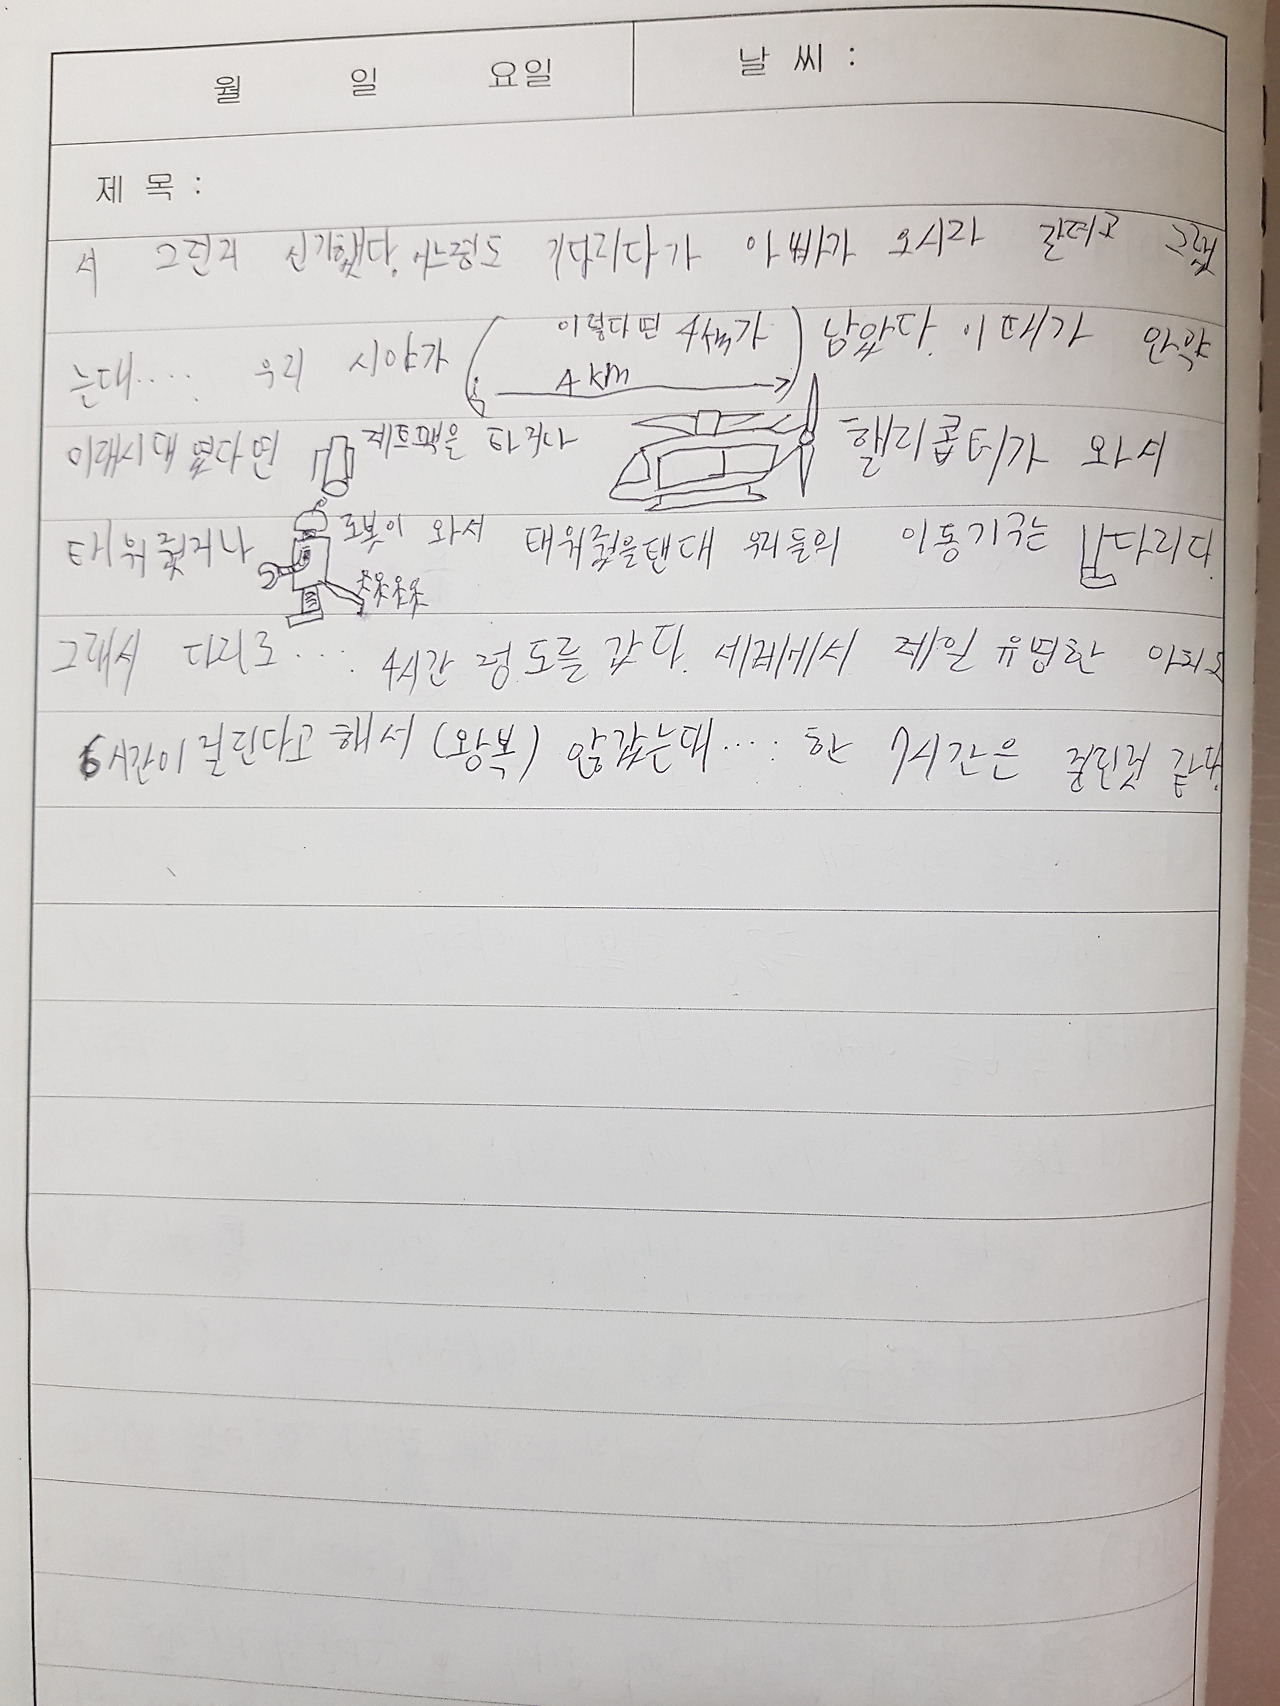 월 일 요일 날 씨 :
제 목 :
서 그런지 신기했다. 어느정도 기다리다가 아빠가 오시라 그랬
는대.... 우리 시야가 ( 이렇다면 4km가 ) 남았다. 이 때가 만약
4 km
미래시대 였다면 제트팩을 타거나 헬리콥터가 와서
태워줬거나 로봇이 와서 태워줬을탠대 우리들의 이동기구는 다리다.
그래서 다리로.... 4시간 정도를 갔다. 세계에서 제일 유명한
6시간이 걸린다고 해서 (왕복) 않갔는대.... 한 7시간은 걸린것 같다.